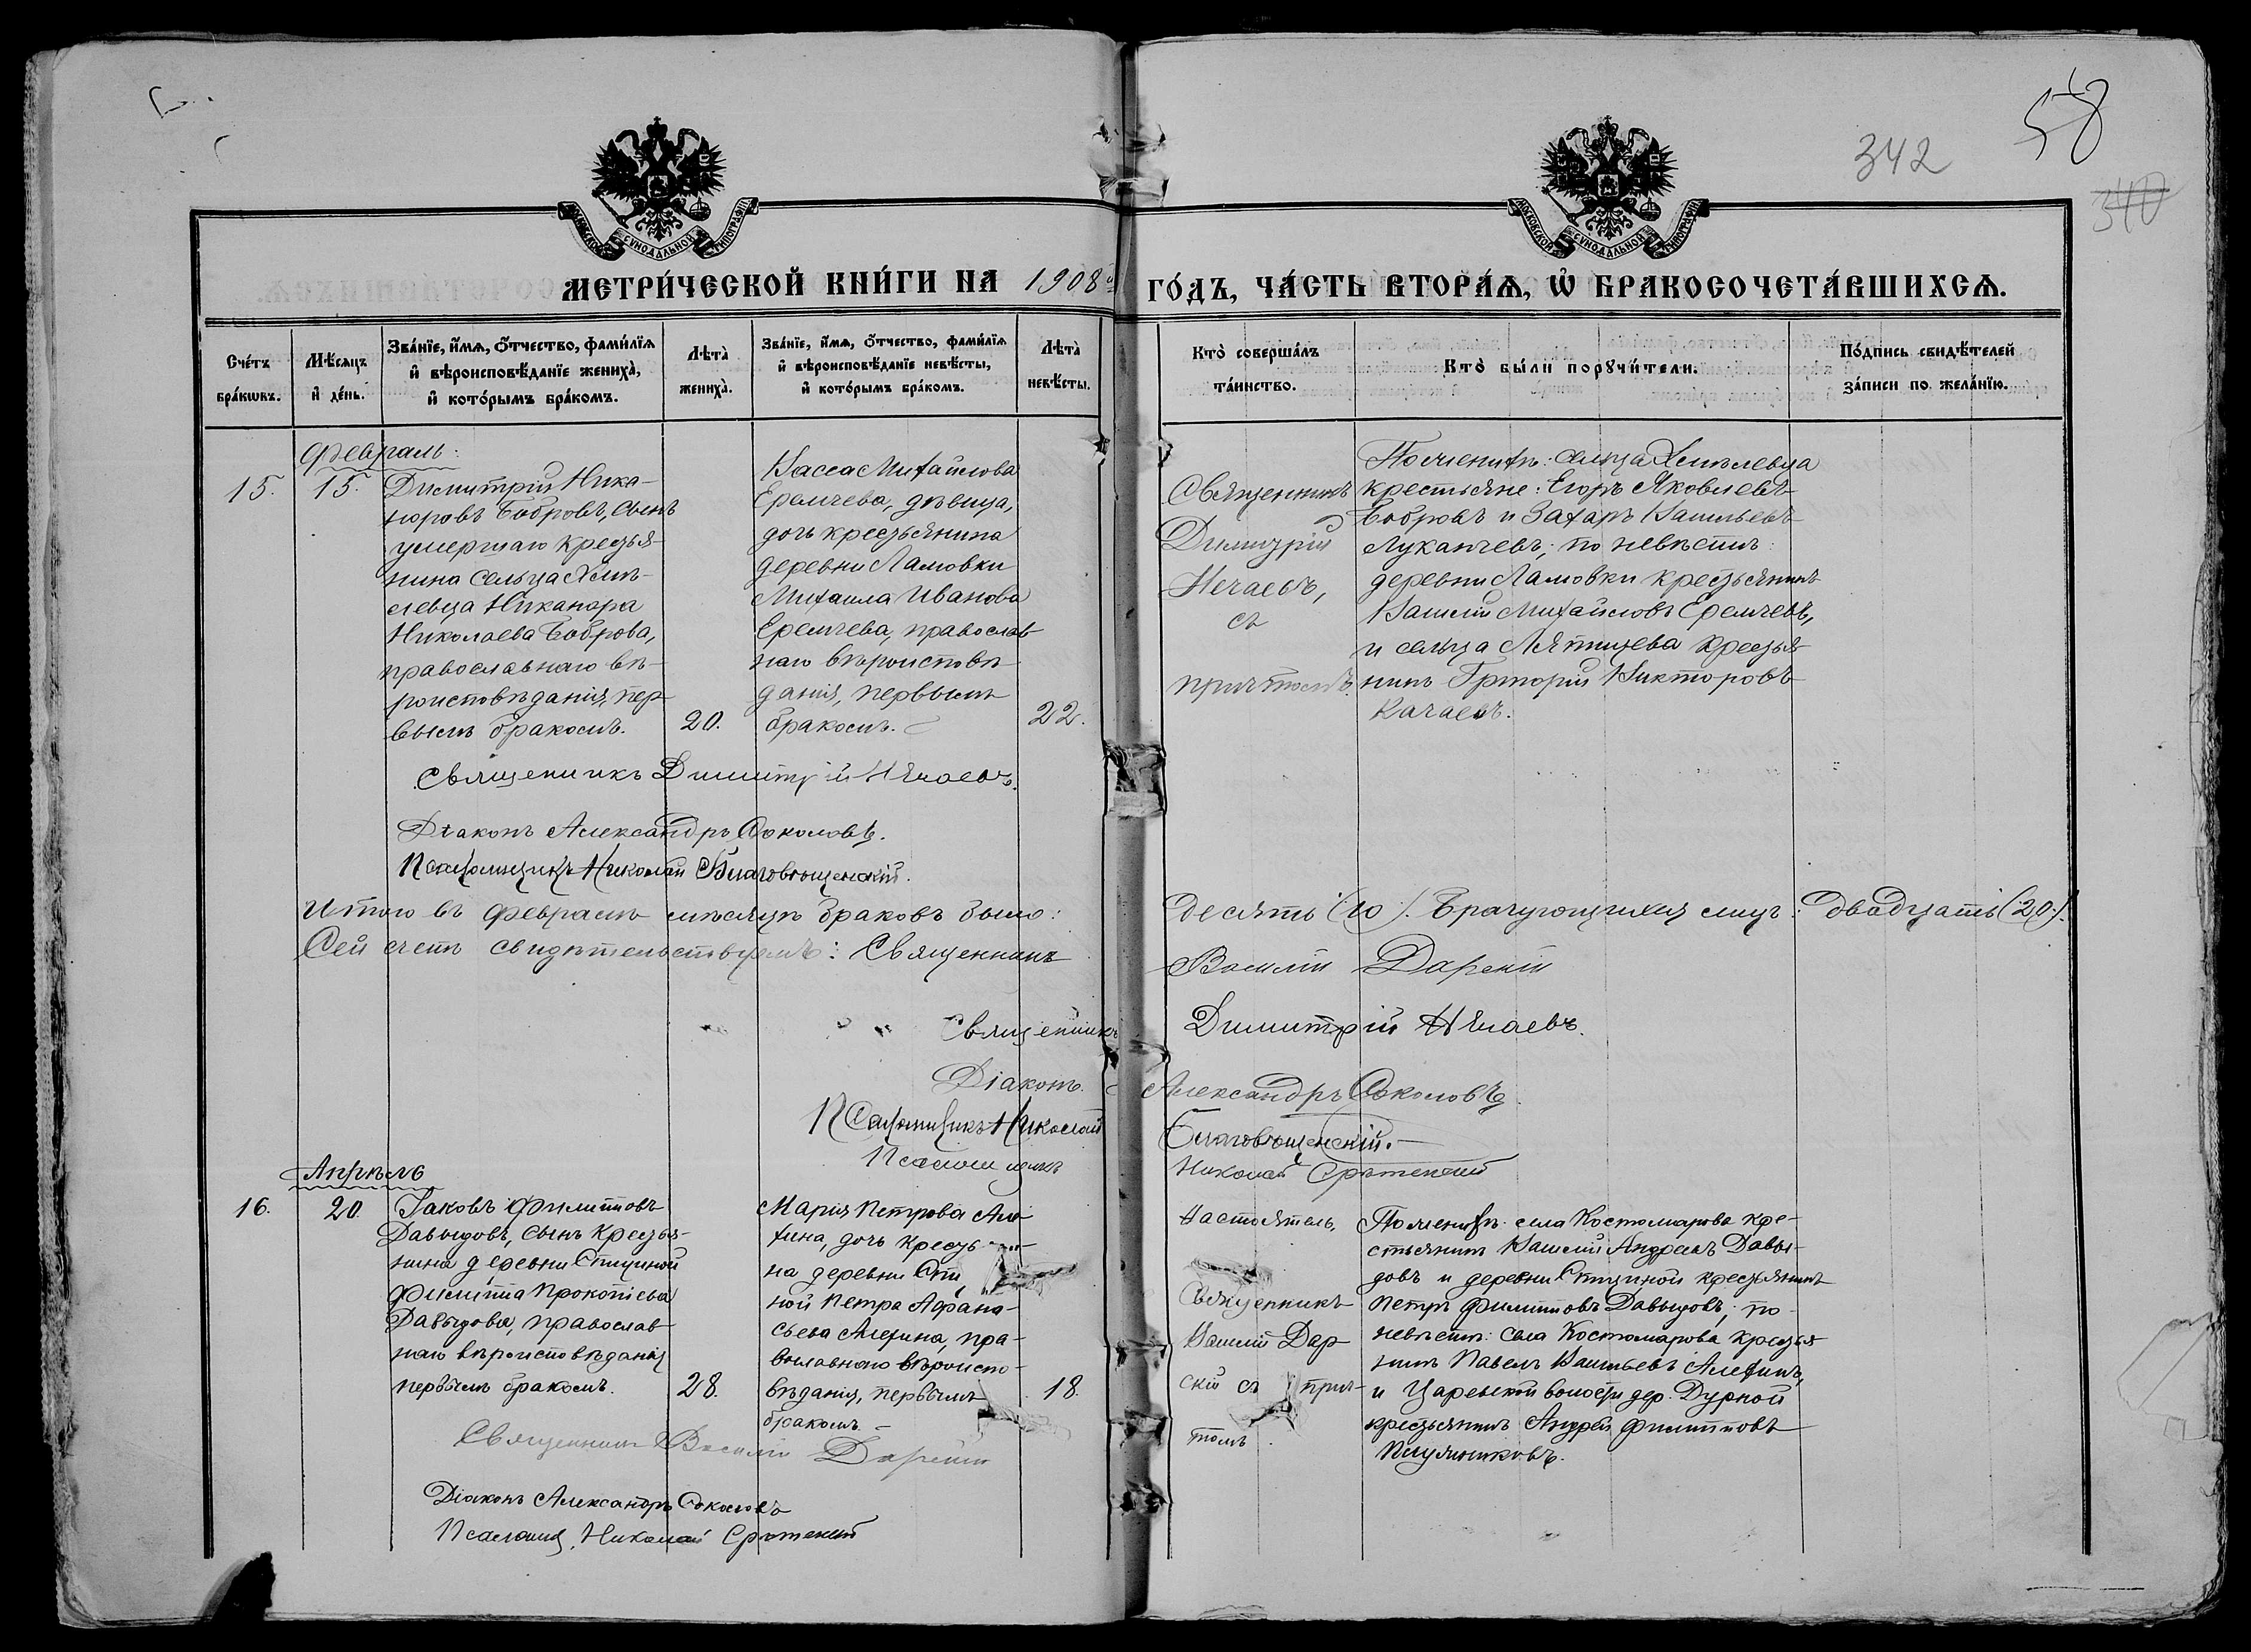 342
58
340
МОСКОВСКОЙ СѴНОДАЛЬНОЙ ТИПОГРАФІИ
МОСКОВСКОЙ СѴНОДАЛЬНОЙ ТИПОГРАФІИ
МЕТРИ́ЧЕСКОЙ КНИ́ГИ НА 1908й ГО́ДЪ, ЧА́СТЬ ВТОРА́Ѧ, Ѡ҆ БРАКОСОЧЕТА́ВШИХСѦ.
Сче́тъ бра́кѡвъ.
Мѣ́сяцъ и҆ де́нь.
Зва́нїе, и҆́мѧ, ѻ҆́тчество, фамѝлїѧ
и҆ вѣроисповѣ́данїе жениха̀,
и҆ кото́рымъ бра́комъ.
Лѣта̀ жениха̀.
Зва́нїе, и҆́мѧ, ѻ҆́тчество, фамѝлїѧ
и҆ вѣроисповѣ́данїе невѣ́сты,
и҆ кото́рымъ бра́комъ.
Лѣта̀ невѣ́сты.
Кто̀ соверша́лъ та́инство.
Кто̀ бы́ли порꙋчи́тели.
По́дпись свидѣ́телей за́писи по жела́нїю.
Февраль:
15.
15.
Димитрій Ника-
норовъ Бобровъ, сынъ
умершаго крестья-
нина сельца Хмѣ-
левца Никанора
Николаева Боброва,
православнаго вѣ-
роисповѣданія, пер-
вымъ бракомъ.
20.
Васса Михайлова
Еремчева, дѣвица,
дочь крестьянина
деревни Ламовки
Михаила Иванова
Еремчева, православ-
наго вѣроисповѣ-
данія, первымъ
бракомъ.
22.
Священникъ
Димитрій
Нечаевъ,
съ
причтомъ.
По женихѣ: сельца Хмѣлевца
крестьяне: Егоръ Яковлевъ
Бобровъ и Захаръ Васильевъ
Луканчевъ; по невѣстѣ:
деревни Ламовки крестьянинъ
Василій Михайловъ Еремчевъ,
и сельца Лятищева крестья-
нинъ Григорій Викторовъ
Качаевъ.
Священникъ Димитрій Нечаевъ.
Діаконъ Александръ Соколовъ.
Псаломщикъ Николай Благовѣщенскій.
Итого въ февралѣ мѣсяцѣ браковъ было: десять (10). Брачующихся лицъ: двадцать (20).
Сей счетъ свидѣтельствуемъ: Священникъ Василій Дарскій
Священникъ Димитрій Нечаевъ.
Діаконъ Александръ Соколовъ.
Псаломщикъ Николай Благовѣщенскій.
Псаломщикъ Николай Срѣтенскій
Апрѣль
16.
20.
Іаковъ Филипповъ
Давыдовъ, сынъ крестья-
нина деревни Спициной
Филиппа Прокопіева
Давыдова, православ-
наго вѣроисповѣданія
первымъ бракомъ.
28.
Марія Петрова Але-
хина, дочь крестья
на деревни Спи
ной Петра Афана-
сьева Алехина, пра-
вославнаго вѣроиспо-
вѣданія, первымъ
бракомъ.
18.
Настоятель,
Священникъ
Василій Дар-
скій съ прич-
томъ.
По женихѣ: села Костомарова кре-
стьянинъ Василій Андреевъ Давы-
довъ и деревни Спициной крестьянинъ
Петръ Филипповъ Давыдовъ; по
невѣстѣ: села Костомарова крестья-
нинъ Павелъ Васильевъ Алехинъ,
и Царевской волости дер. Дурной
крестьянинъ Андрей Филипповъ
Священникъ Василій Дарскій
Діаконъ Александръ Соколовъ
Псаломщ. Николай Срѣтенскій